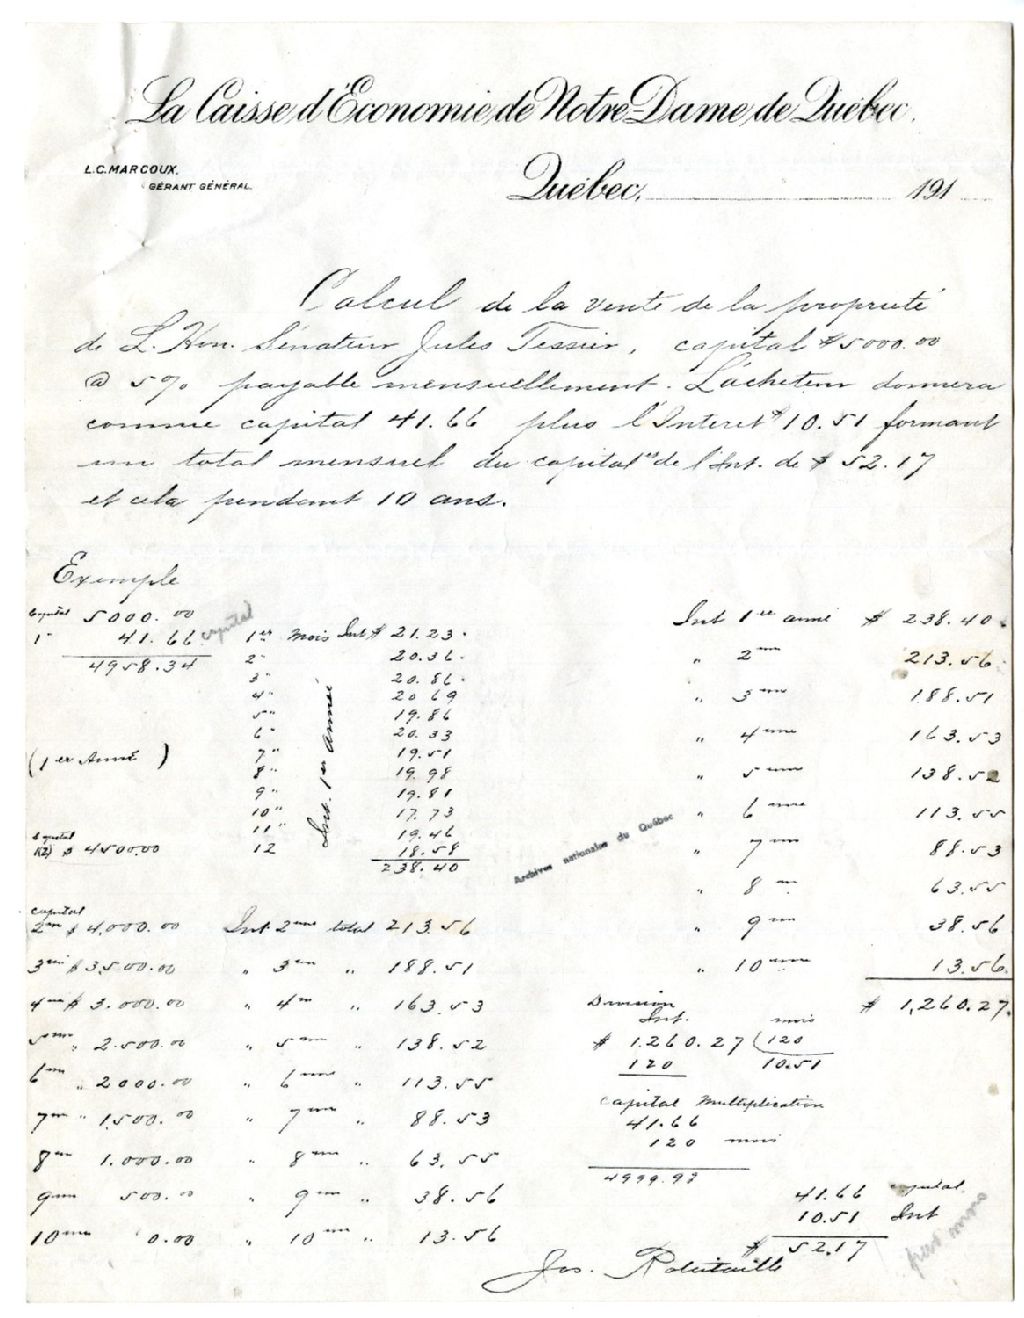 La Caisse d'Economie de Notre-Dame de Québec.
L.C. MARCOUX.
GÉRANT GÉNÉRAL
Québec, 191
Calcul de la vente de la propriété
de L. Hon. Sénateur Jules Tessier, capital $5000.00
@ 5% payable mensuellement. L'acheteur donnera
comme capital 41.66 plus l'Interet $10.51 formant
un total mensuel du capital & de l'Int. de $52.17
et cela pendant 10 ans.
Exemple
Capital 5000.00
1" 41.66 capital
4958.34
(1er Année)
Capital
(12) $4500.00
1er mois Int $ 21.23
2" 20.36
3" 20.86
4" 20.69
5" 19.86
6" 20.33
7" 19.51
8" 19.98
9" 19.81
10" 17.73
11" 19.46
12 18.58
238.40
Int. 1er Année
Int 1ere année $ 238.40
" 2me 213.56
" 3me 188.51
" 4me 163.53
" 5me 138.52
" 6me 113.55
" 7me 88.53
" 8me 63.55
" 9me 38.56
" 10me 13.56
$ 1,260.27
Archives nationales du Québec
capital
2me $4,000.00 Int 2me total 213.56
3me $3,500.00 " 3me " 188.51
4me $3.000.00 " 4me " 163.53
5me " 2.500.00 " 5me " 138.52
6me " 2000.00 " 6me " 113.55
7me " 1,500.00 " 7me " 88.53
8me 1.000.00 " 8me " 63.55
9me 500.00 " 9me " 38.56
10me 0.00 " 10me " 13.56
Division
Int. mois
$ 1.260.27 (120
120 10.51
capital Multiplication
41.66
120 mois
4999.92
41.66 capital
10.51 Int
$ 52.17
par mois
Jos. Robitaille